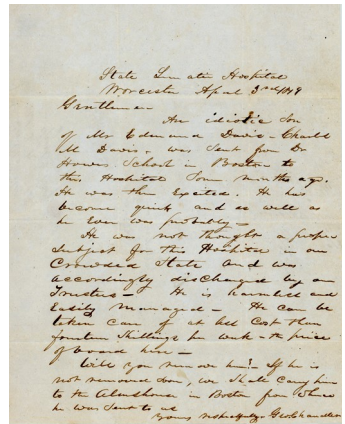 State Lunatic Hospital
Worcester April 3rd 1849
Gentlemen
An idiotic Son
of Mr Edmund Davis - Charles
M Davis, was Sent from Dr
Howes School in Boston to
this Hospital Some months ago.
He was then Excited. He has
become quiet and as well as
he Ever was probably -
He was not thought a proper
Subject for this Hospital in our
Crowded State and was
accordingly discharged by our
Trustees - He is harmless and
Easily managed - He can be
taken care of at less Cost than
fourteen Shillings pr week - the price
of board here -
Will you remove him? If he is
not removed soon, we Shall carry him
to the Almshouse in Boston from whence
he was Sent to us
Yours respectfully Geo Chandler